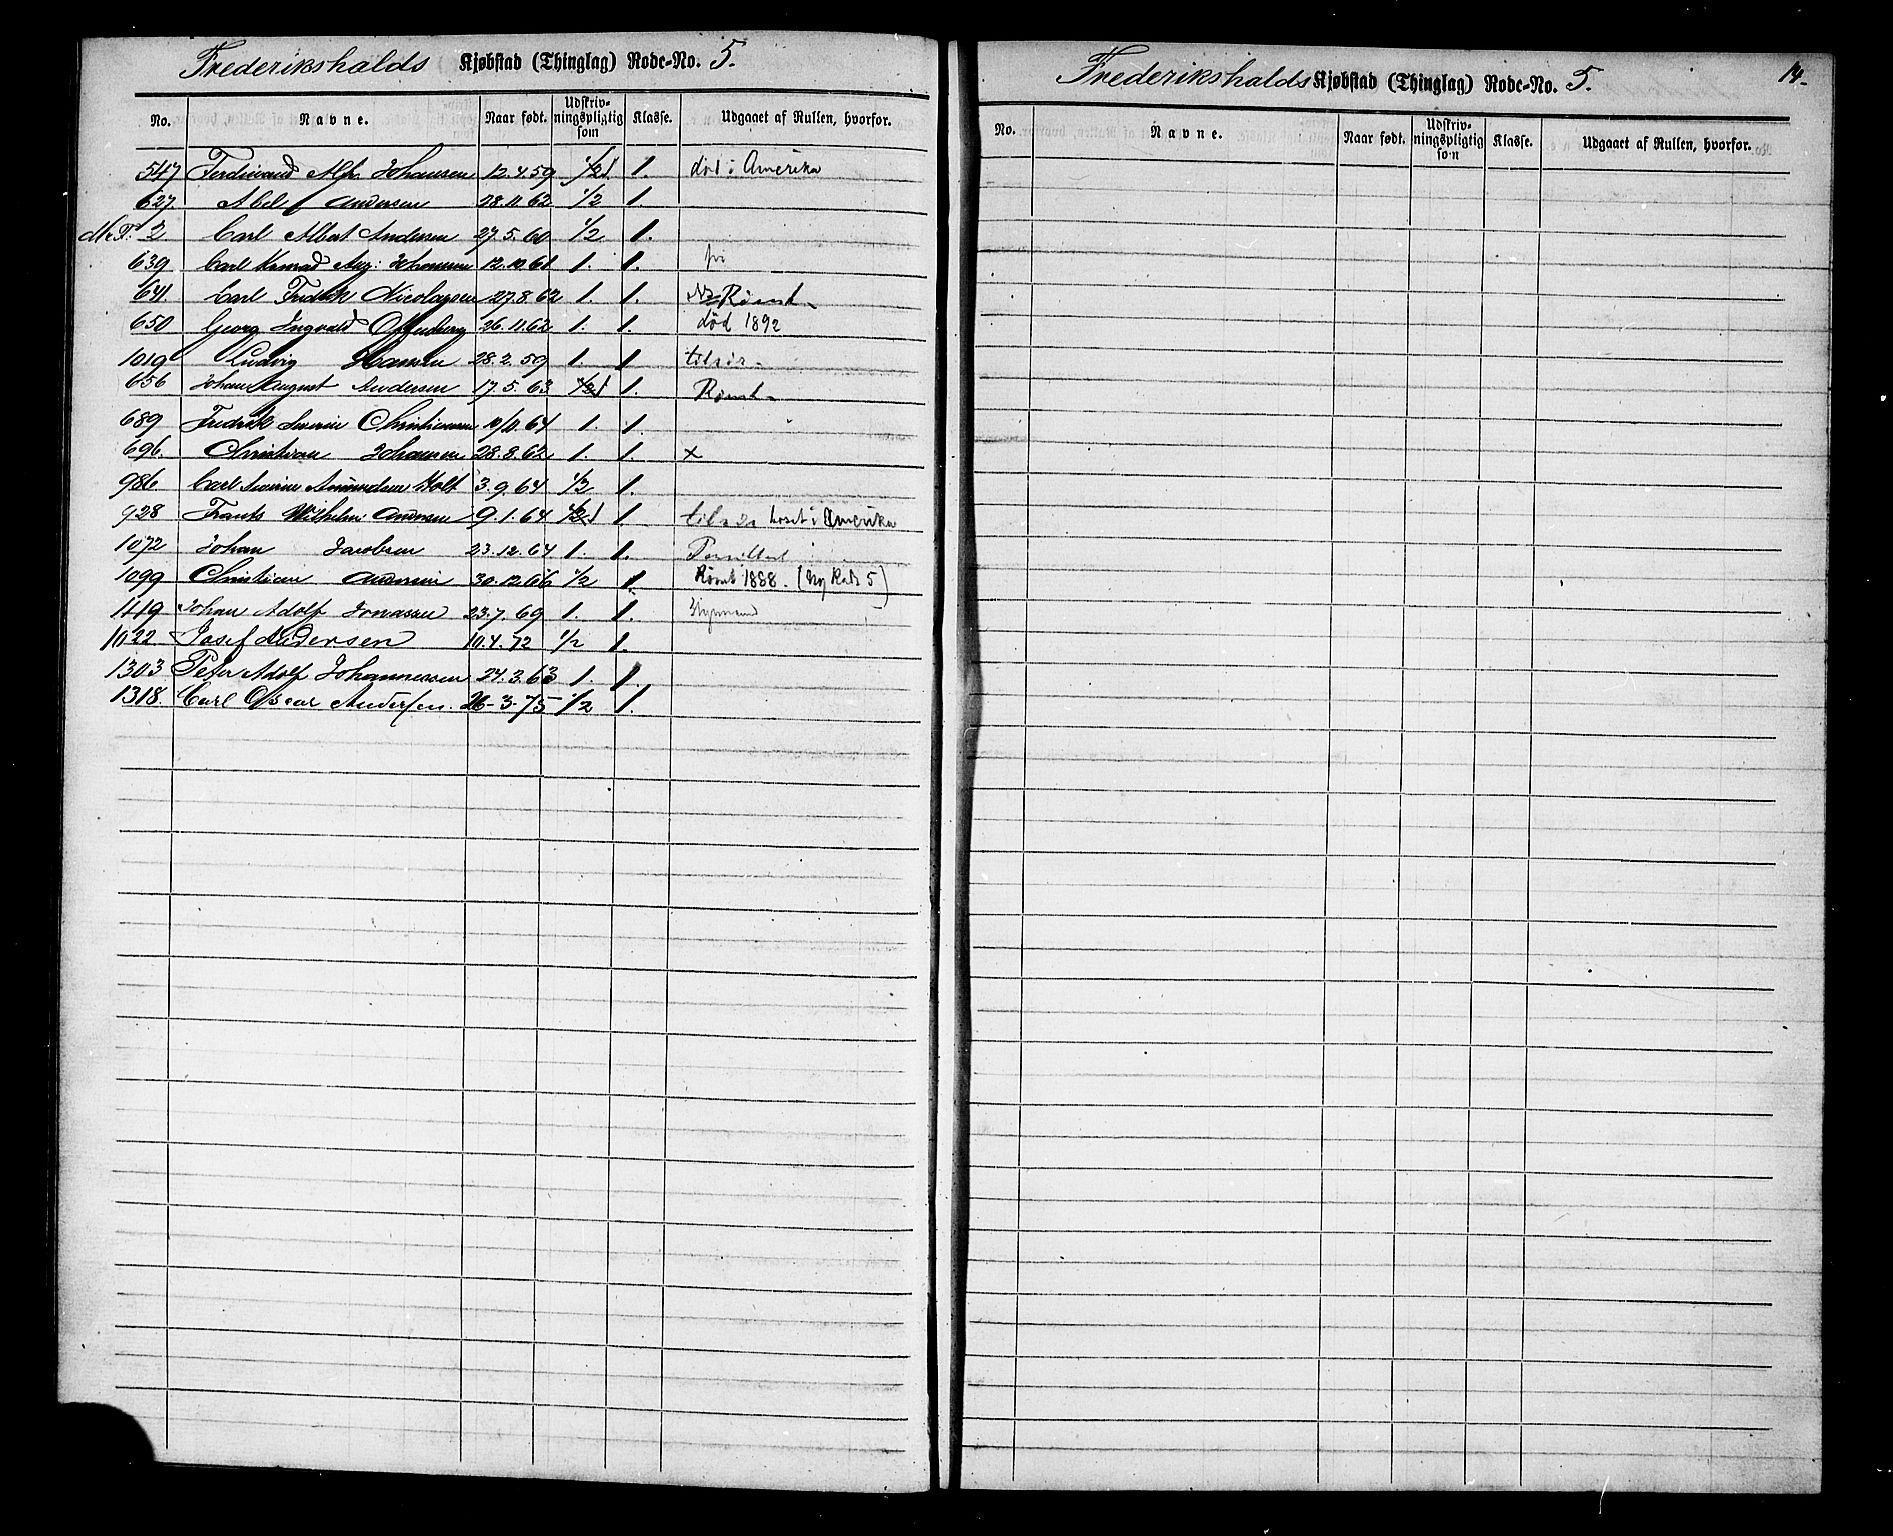 Frederikshalds Kjøbstad (Thinglag) Rode-No. 5.
No. Navne. Naar født. Udskriv-ningspligtig som Klasse. Udgaaet af Rullen, hvorfor.
547 Ferdinand Alfr. Johansen 12.4.59 1/2 1. død i Amerika
627 Abel Andersen 28.11.62 1/2 1.
2 Carl Albert Andersen 27.5.60 1/2 1.
639 Carl Konrad Aug: Johansen 12.10.61 1. 1. fri
641 Carl Fredrik Nicolaysen 27.8.62 1. 1. Rømt
650 Georg Ingvald 26.11.62 1. 1. død 1892
1019 Ludvig Hansen 28.2.59 1. 1. tilsøs
656 Johan August Andersen 17.5.63 1. Rømt
689 Fredrik Severin Christiansen 10/11.64 1. 1.
696. Christian Johansen 28.8.62 1. 1. x
986 Carl Severin Amundsen Holt 3.9.64 1/2 1.
928 Frants Wilhelm Andersen 9.1.64 1/2 1. bosat i Amerika
1072 Johan Jacobsen 23.12.64 1. 1.
1099 Christian Andersen 30.12.66 1/2 1. Rømt 1888. (Ny Rode 5)
1119 Johan Adolf Jonassen 23.7.69 1. 1. Styrmand
1022 Josef Andersen 10.4.72 1/2 1.
1303 Peter Adolf Johannessen 24.3.63 1. 1.
1318. Carl Oscar Andersen. 26-3-75- 1/2 1.
Frederikshalds Kjøbstad (Thinglag) Rode-No. 5. 14.
No. Navne. Naar født. Udskriv-ningspligtig som Klasse. Udgaaet af Rullen, hvorfor.